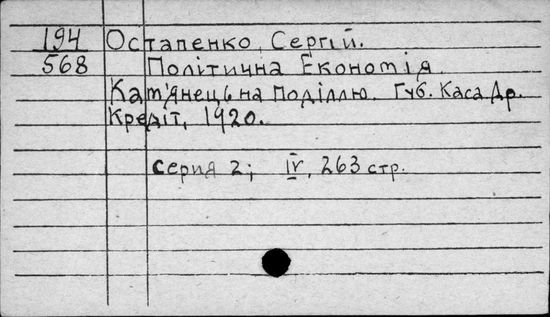 194 Остапенко, Сергій.
568 Політична Економія.
Кам'янець на Поділлю. Губ. Каса Др.
Кредіт, 1920.
серия 2; IV, 263 стр.